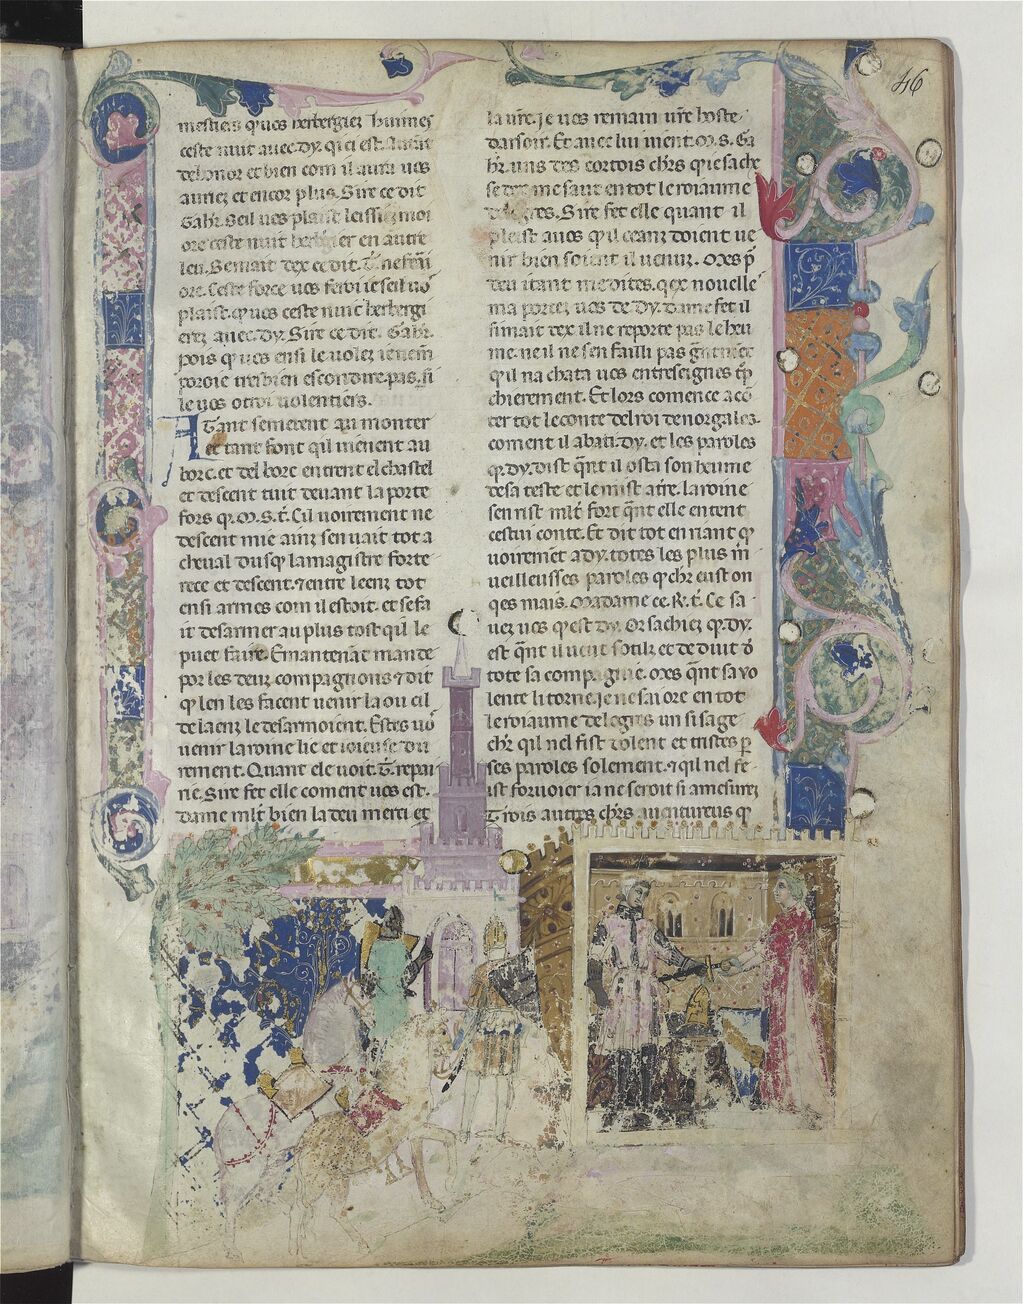 46
mestiers q̄ uos herbergiez huimes
ceste nuit auec .Dy. qi ci est. Autāt
del onor et bien com il aura uos
auriez et encor plus. Sire ce dit
Gahr. Se il uos plaist leissiez moi
ore ceste nuit herbergier en autre
leu. Se mait dex ce dit .T. ne ferai
ore. Ceste force uos feroi ie se il uos
plaist. q̄ uos ceste nuit herbergi
erez auec .Dy. Sire ce dit. Gahr.
pois q̄ uos ensi le uolez
tres bien escondire pas. si
le uos otroi uolentiers.
Atant se metent au monter
et tant font qil uienent au
borc. et del borc entrent el chastel
et descent tuit deuant la porte
fors q̄ .M.S.T. Cil uoirement ne
descent mie ainz sen uait tot a
cheual dusq̄ la magistre forte
rece et descent. ⁊ entre leenz tot
ensi armes com il estoit. et se fa
it desarmer au plus tost qil le
puet faire. E mantenāt mande
por les deus compagnons ⁊ dit
q̄ len les facent uenir la ou cil
de laenz le desarmoient. Estes uo
uenir la roine lie et ioieuse du
rement. Quant ele uoit .T. repai
ne. Sire fet elle coment uos est.
Dame ml't bien la deu merci et
la ur̄e. Je uos remain ur̄e hoste
darsoir. Et auec lui uient .M.S. Ga
hr. uns des cortois chr̄s qe ie sache
se dex me saut en tot le roiaume
de logres. Sire fet elle quant il
pleist a uos q̄ il ceanz doient ue
nir bien soient il uenuz. Mes p̄
deu itant me dites. qex nouelle
ma portez uos de .Dy. Dame fet il
si mait dex il ne reporte pas le heu
me. ne il ne sen failli pas
qil nachata uos entreseignes
chierement. Et lors comence acō
ter tot le conte del roi de norgales.
coment il abati .Dy. et les paroles
q̄ .Dy. dist qn̄t il osta son heume
de sa teste et le mist a tr̄e. la roine
sen rist ml't fort qn̄t elle entent
cestui conte. Et dit tot en riant q̄
uoirement a .Dy. totes les plus m̄
ueilleusses paroles q̄ chr̄ eust on
qes mais. Madame ce .R.T. Ce sa
uez uos q̄ est .Dy. Or sachiez q̄ .Dy.
est qn̄t il ueut soulz et deduit d̄
tote sa compagnie. Mes qn̄t sa uo
lente li torne. ie ne sai ore en tot
le roiaume de logres un si sage
chr̄ qil nel fist dolent et tristes p̄
ses paroles solement. ⁊ qil nel fe
ist foruoier ia ne seroit si amesurez
Trois autres chr̄s auentureus q̄